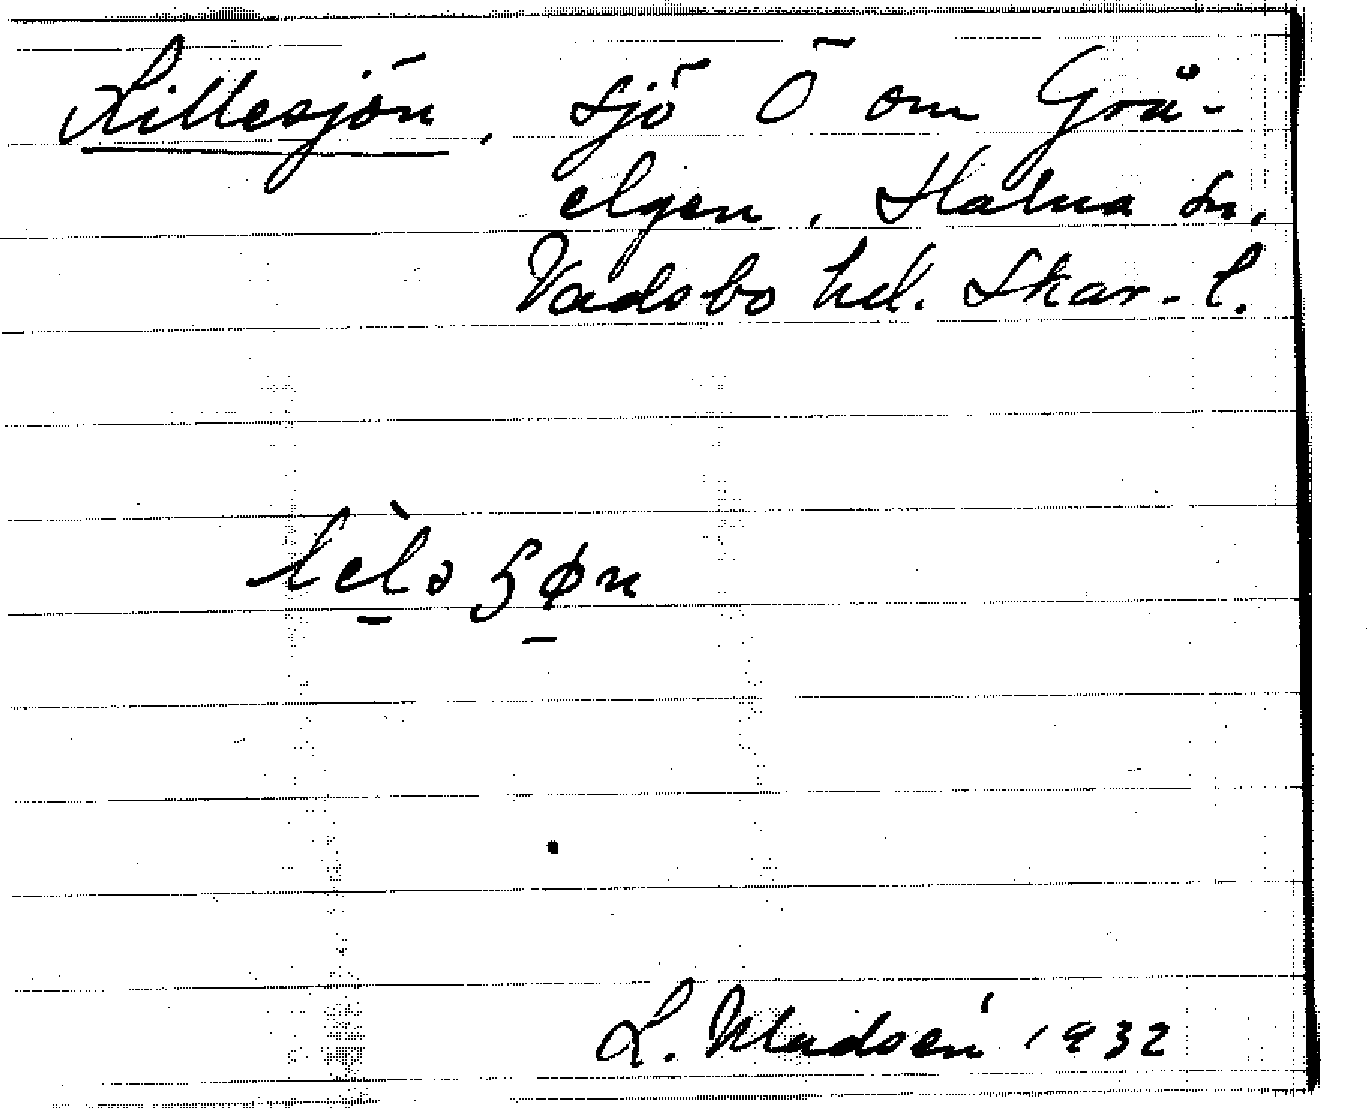 Lillesjön, sjö Ö om Grå-
elgen, Halna sn,
Vadsbo hd. Skar. l.
lèlə ʂøn
L. Madsén 1932